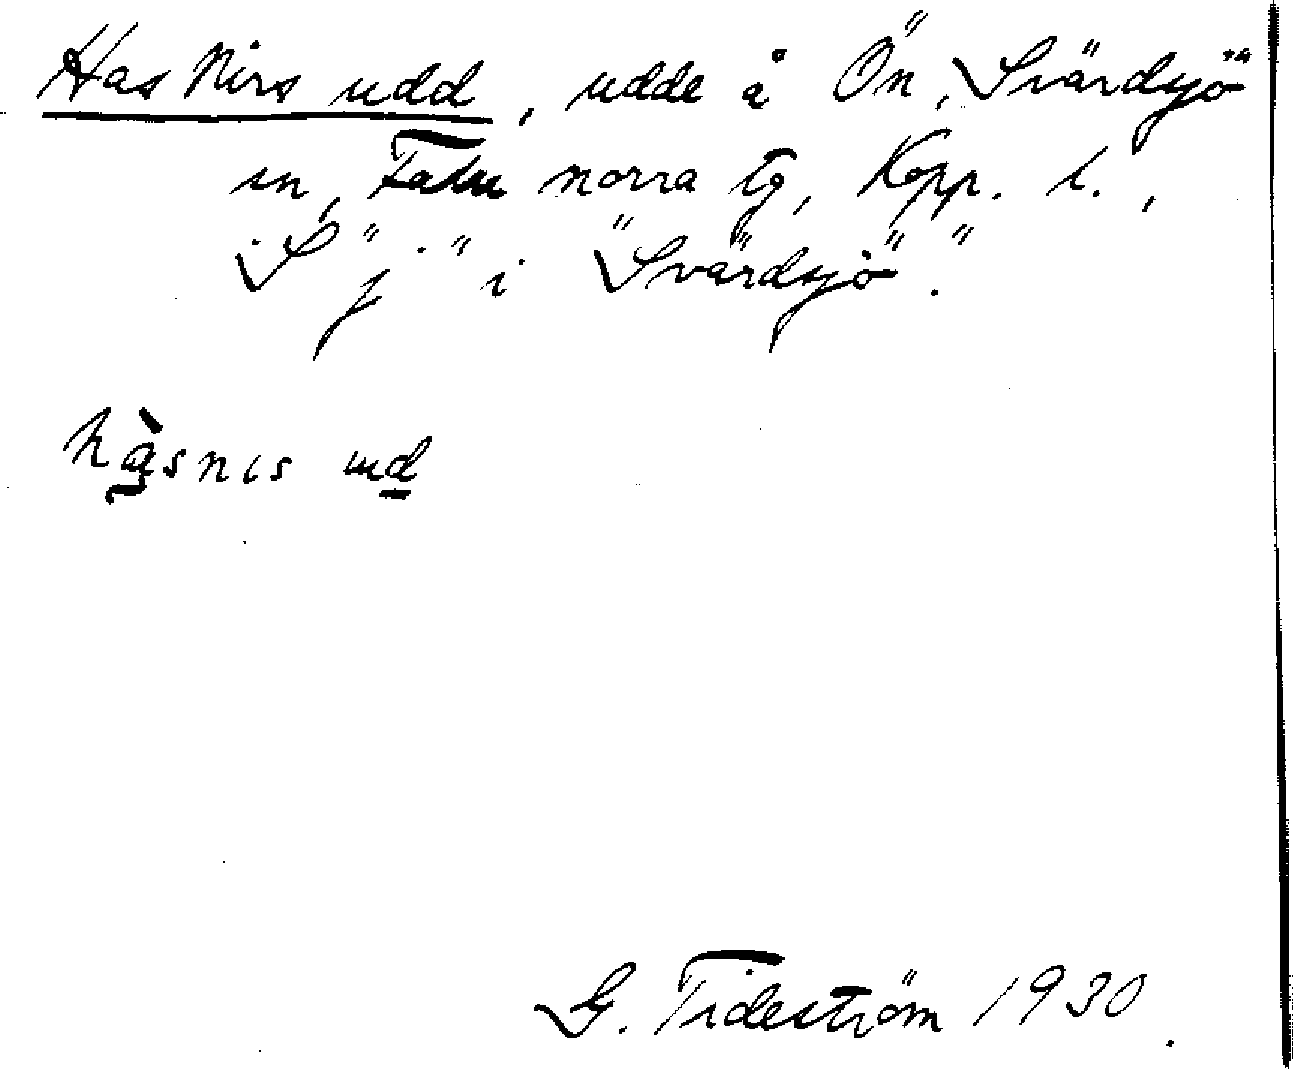 Has Nirs udd, udde å Ön, Svärdsjö
sn, Falu norra tg, Kopp. l.,
i "Svärdsjö".
hàsnis ud
G. Tideström 1930.